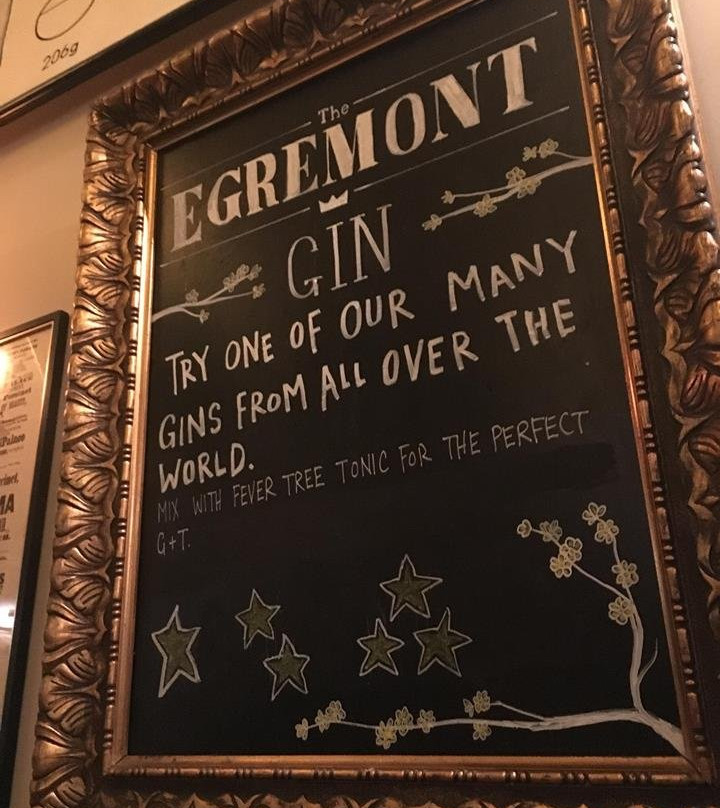 206g
The
EGREMONT
GIN
TRY ONE OF OUR MANY
GINS FROM ALL OVER THE
WORLD.
MIX WITH FEVER TREE TONIC FOR THE PERFECT
G+T.